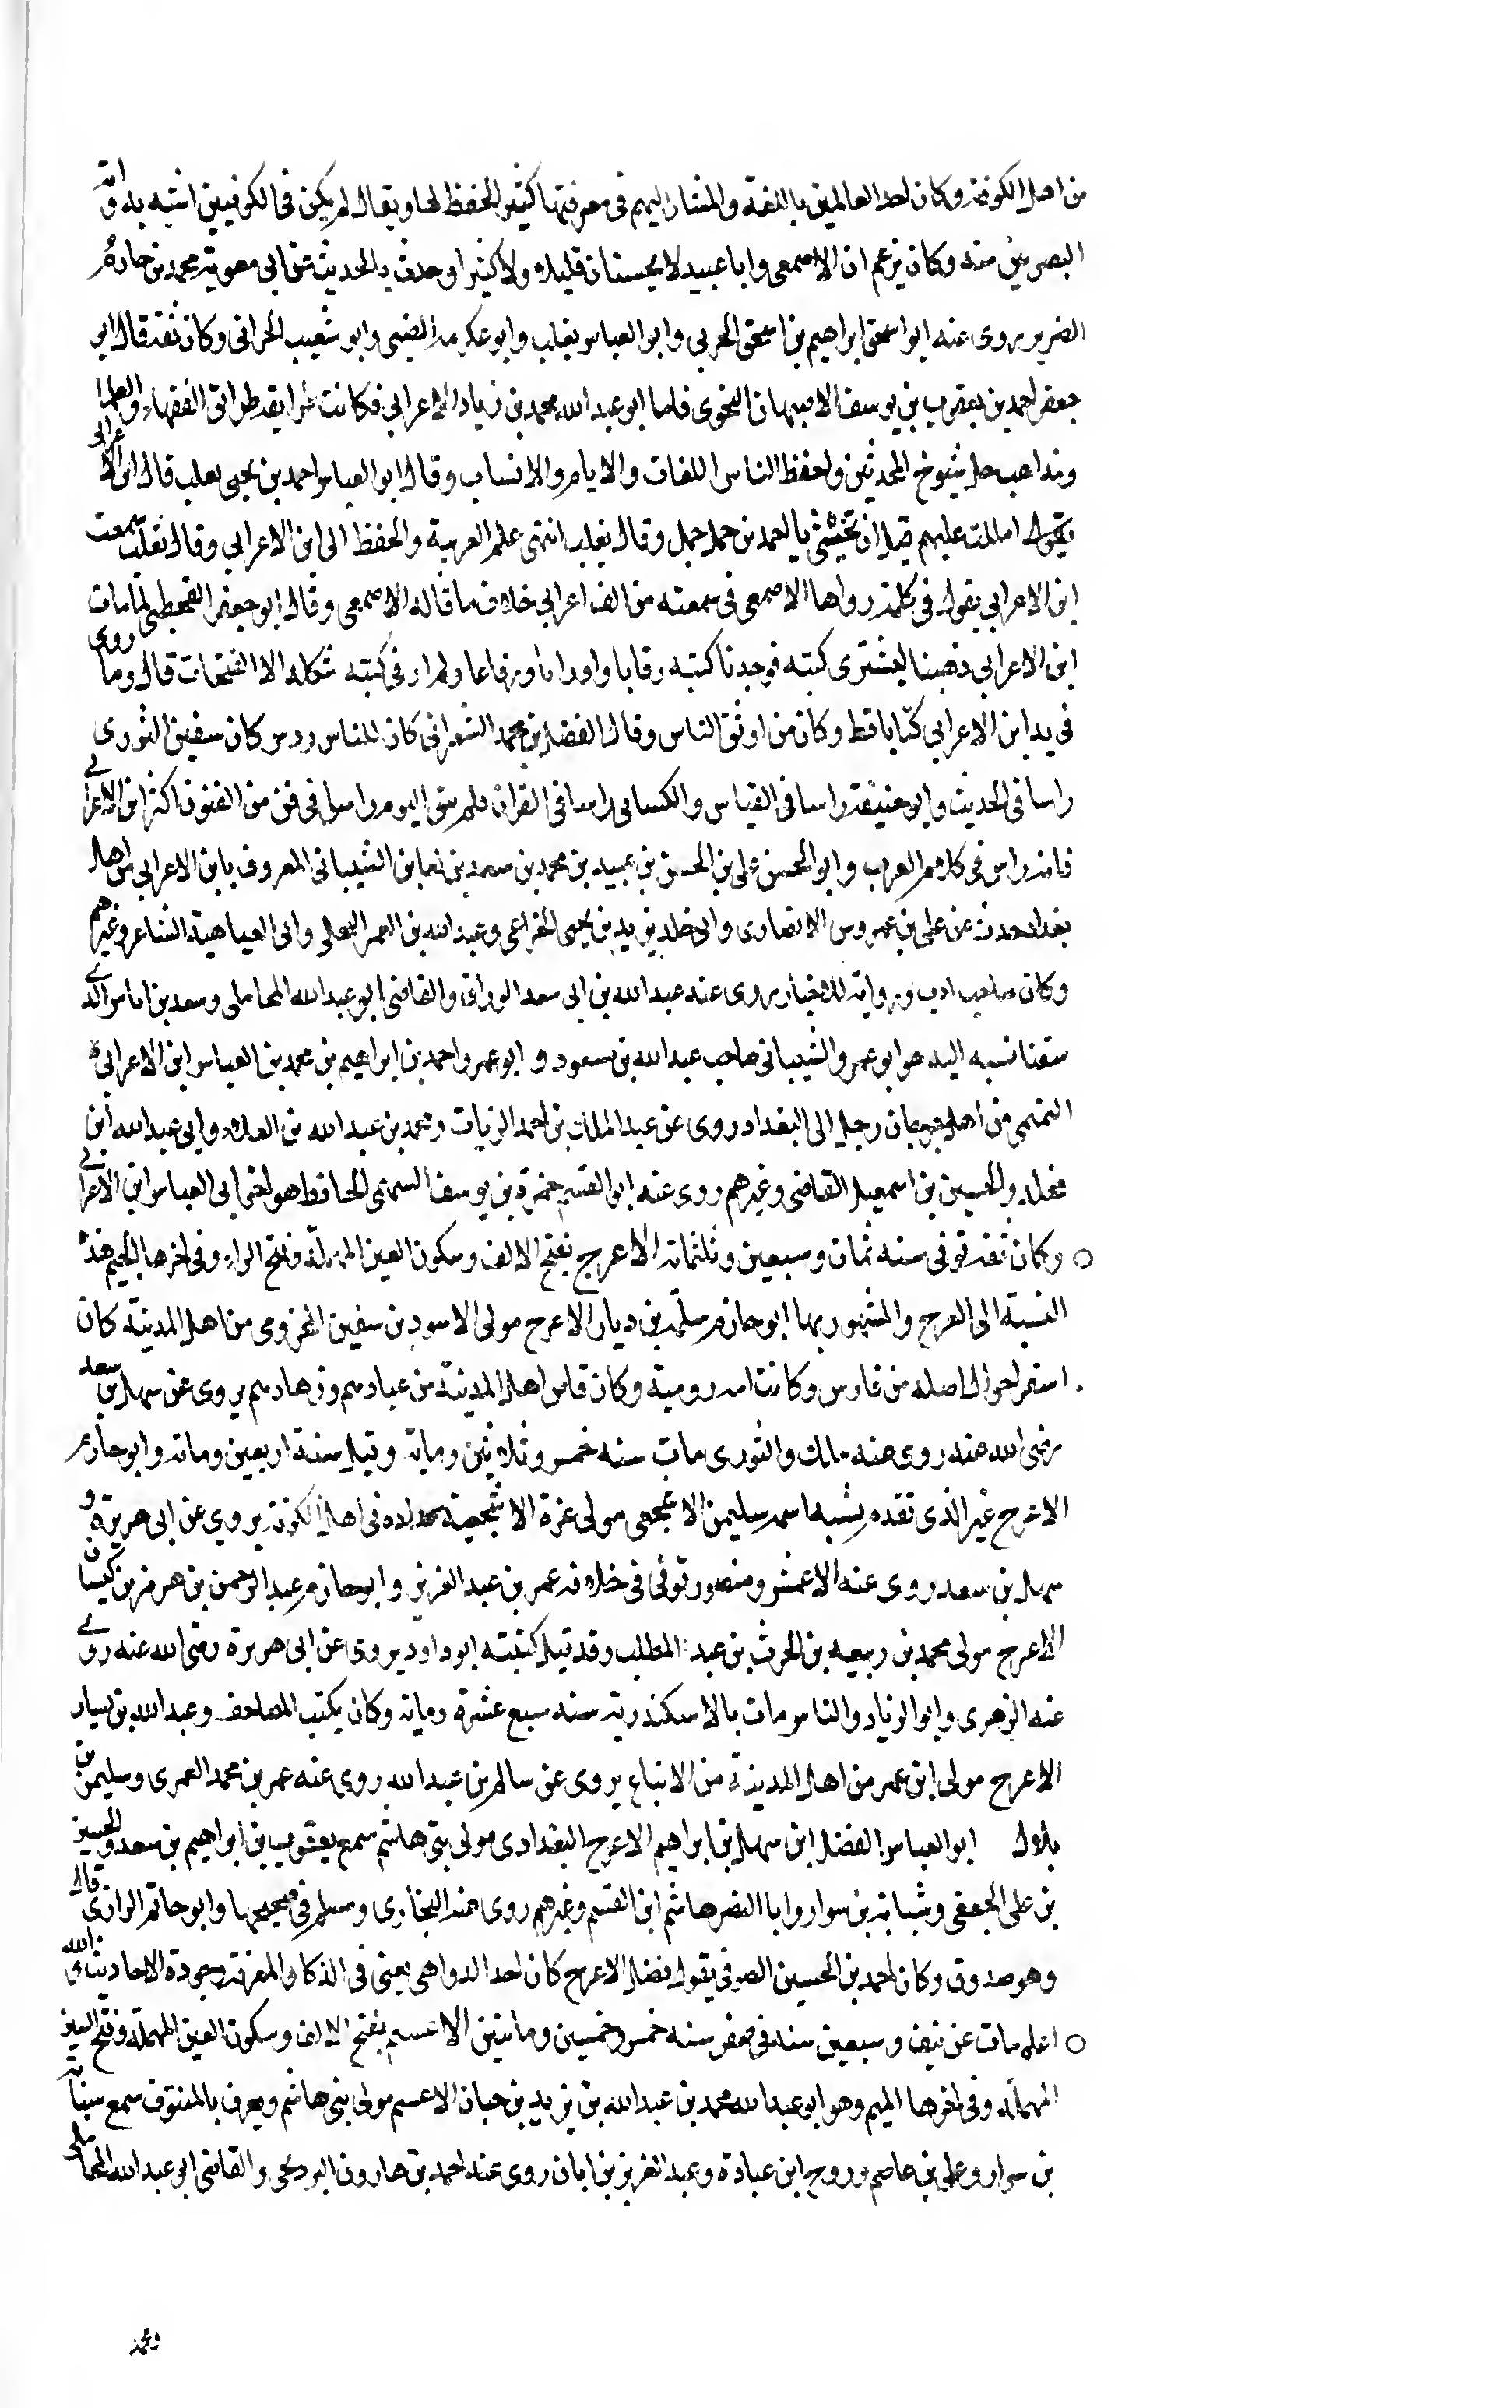 من اهل الكوفة وكان احد العالمين باللغة والمشار اليهم فى معرفتها كثير الحفظ لها ويقال لم يكن فى الكوفيين اشبه برواية
البصريين منه وكان يزعم ان الاصمعى وابا عبيد لا يحسنان قليلا ولا كثيرا وحدث بالحديث عن ابى معوية محمد بن حازم
الضرير روى عنه ابو اسحق ابراهيم بن اسحق الحربى وابو العباس ثعلب وابو عكرمة الضبى وابو شعيب الحرانى وكان ثقة قال ابو
جعفر احمد بن يعقوب بن يوسف الاصبهانى النحوى فاما ابو عبد الله محمد بن زياد الاعرابى فكانت طرايقه طرائق الفقهاء والعلما
ومذاهب جل شيوخ المحدثين واحفظ الناس اللغات والايام والانساب وقال ابو العباس احمد بن يحيى ثعلب قال ابن الاعرابى
امللت عليهم قبل ان تجيئنى يا احمد بن حمل جمل وقال ثعلب انتهى علم العربية والحفظ الى ابن الاعرابى وقال ثعلب سمعت
ابن الاعرابى يقول فى كلمة رواها الاصمعى فى سمعته من الف اعرابى خلاف ما قاله الاصمعى وقال ابو جعفر القحطبى لما مات
ابن الاعرابى ذهبنا ليشترى كتبه فوجدنا كتبه رقاعا واوراقا ورقاعا ولم ار فى كتبه شكله الا الفتحات قال وما روى
فى يد ابن الاعرابى كتابا قط وكان من اوثق الناس وقال الفضل بن محمد الشعرانى كان للناس روس كان سفين الثورى
راسا فى الحديث وابو حنيفة راسا فى القياس والكسايى راسا فى القران فلم يبق اليوم راس فى فن من الفنون اكثر ابن الاعرابى
فانه راس فى كلام العرب وابو الحسن على بن الحسن بن عبيد بن محمد بن الشيبانى المعروف بابن الاعرابى من اهل
بغداد حدث عن على بن عمروس الانصارى وابى خلد يزيد بن يحيى الخزاعى وعبد الله بن العمر وابى العتاهية الشاعر وغيرهم
وكان صاحب ادب ورواية للاخبار روى عنه عبد الله بن ابى سعد الوراق والقاضى ابو عبد الله المحاملى وسعد بن اياس الذى
سقنا نسبه اليه هو ابو عمرو الشيبانى صاحب عبد الله بن مسعود و ابو عمرو احمد بن ابراهيم بن محمد بن العباس ابن الاعرابى
التميمى من اهل جرجان رحل الى البغداد روى عن عبد الملك بن احمد الزيات ومحمد بن عبد الله بن العلاء وابى عبد الله ابن
مخلد والحسين بن اسمعيل القاضى وغيرهم روى عنه ابو القسم حمزة بن يوسف السهمى الحافظ هو اخى ابى العباس ابن الاعرابى
وكان ثقة توفى سنه ثمان وسبعين وثلثماة الاعرج بفتح الالف وسكون العين المهملة وفتح الراء وفى اخرها الجيم هذه
النسبة الى العرج والمشهور بها ابو حازم سلمة بن دينار الاعرج مولى الاسود بن سفين المخزومى من اهل المدينة كان
اصله من فارس وكانت امه رومية وكان قاص اهل المدينة من عبادهم وزهادهم يروى عن سهل بن سعد
رضى الله عنه روى عنه مالك والثورى مات سنه خمس وثلاثين وماية وقيل سنة اربعين وماة وابو حازم
الاعرج غير الذى تقدم يشبه اسمه سليمن الاشجعى مولى عزة الاشجعية فى اهل الكوفة يروى عن ابى هريرة و
سهل بن سعد روى عنه الاعمش ومنصور توفى فى خلافة عمر بن عبد العزيز وابو حازم عبد الرحمن بن هرمز بن كيسان
الاعرج مولى محمد بن ربيعه بن الحرث بن عبد المطلب وقد قيل كنيته ابو داود يروى عن ابى هريرة رضى الله عنه روى
عنه الزهرى وابو الزناد والناس مات بالاسكندرية سنه سبع عشرة وماية وكان يكتب المصاحف وعبد الله بن يسار
الاعرج مولى ابن عمر من اهل المدينة من الاتباع يروى عن سالم بن عبد الله روى عنه عمر بن محمد العمرى وسليمن بن
بلال ابو العباس الفضل ابن سهل بن ابراهيم الاعرج البغدادى مولى بنى هاشم سمع يعقوب بن ابراهيم بن سعد والحسين
بن على الجعفى وشبابة بن سوار وابا النضر هاشم ابن القسم وغيرهم روى عنه البخارى ومسلم فى صحيحهما وابو حاتم الرازى قال
وهو صدوق وكان احمد بن الحسين الصوفى يقول فضل الاعرج كان احد الدواهى يعنى فى الذكا والمعرفة وجودة الاحاديث والله
اعلم مات عن نيف وسبعين سنه فى صفر سنه خمس وخمسين وماتين الاعسم بفتح الالف وسكون العين المهملة وفتح السين
المهملة وفى اخرها الميم وهو ابو عبد الله محمد بن عبد الله بن يزيد بن حبان الاعسم مولى بنى هاشم ويعرف بالمنتوف سمع شبابة
بن سوار وعلى بن عاصم وروح ابن عبادة وعبد العزيز بن ابان روى عنه احمد بن هارون البرديجى والقاضى ابو عبد الله المحاملى
ومحمد